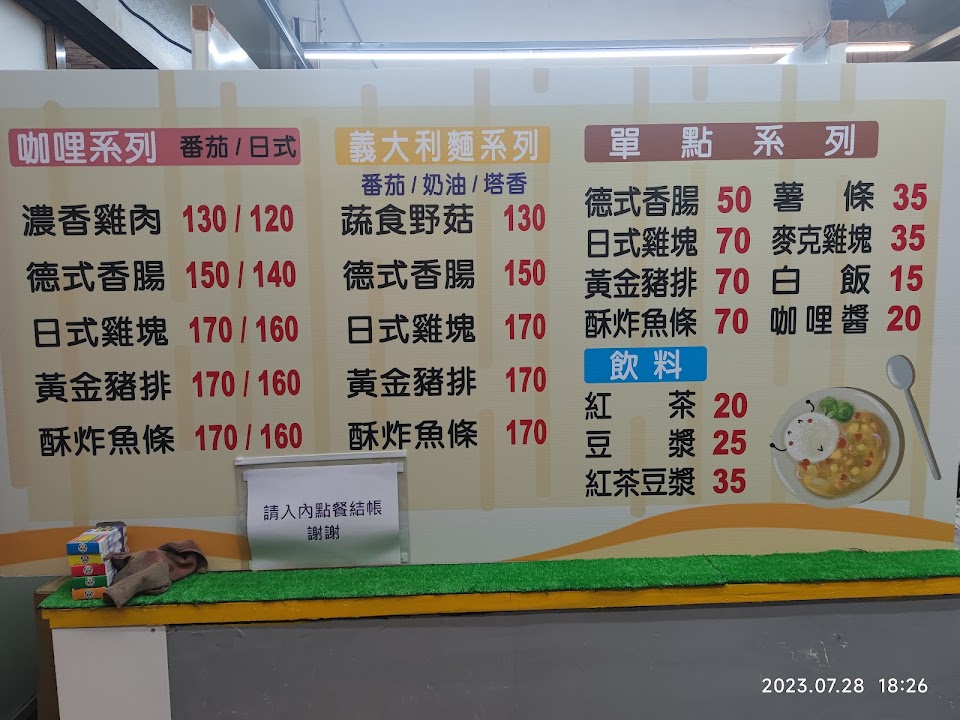 咖哩系列 番茄/日式
濃香雞肉 130 / 120
德式香腸 150 / 140
日式雞塊 170 / 160
黃金豬排 170 / 160
酥炸魚條 170 / 160
義大利麵系列
番茄/奶油/塔香
蔬食野菇 130
德式香腸 150
日式雞塊 170
黃金豬排 170
酥炸魚條 170
單點系列
德式香腸 50 薯條 35
日式雞塊 70 麥克雞塊 35
黃金豬排 70 白飯 15
酥炸魚條 70 咖哩醬 20
飲料
紅茶 20
豆漿 25
紅茶豆漿 35
請入內點餐結帳
謝謝
2023.07.28 18:26